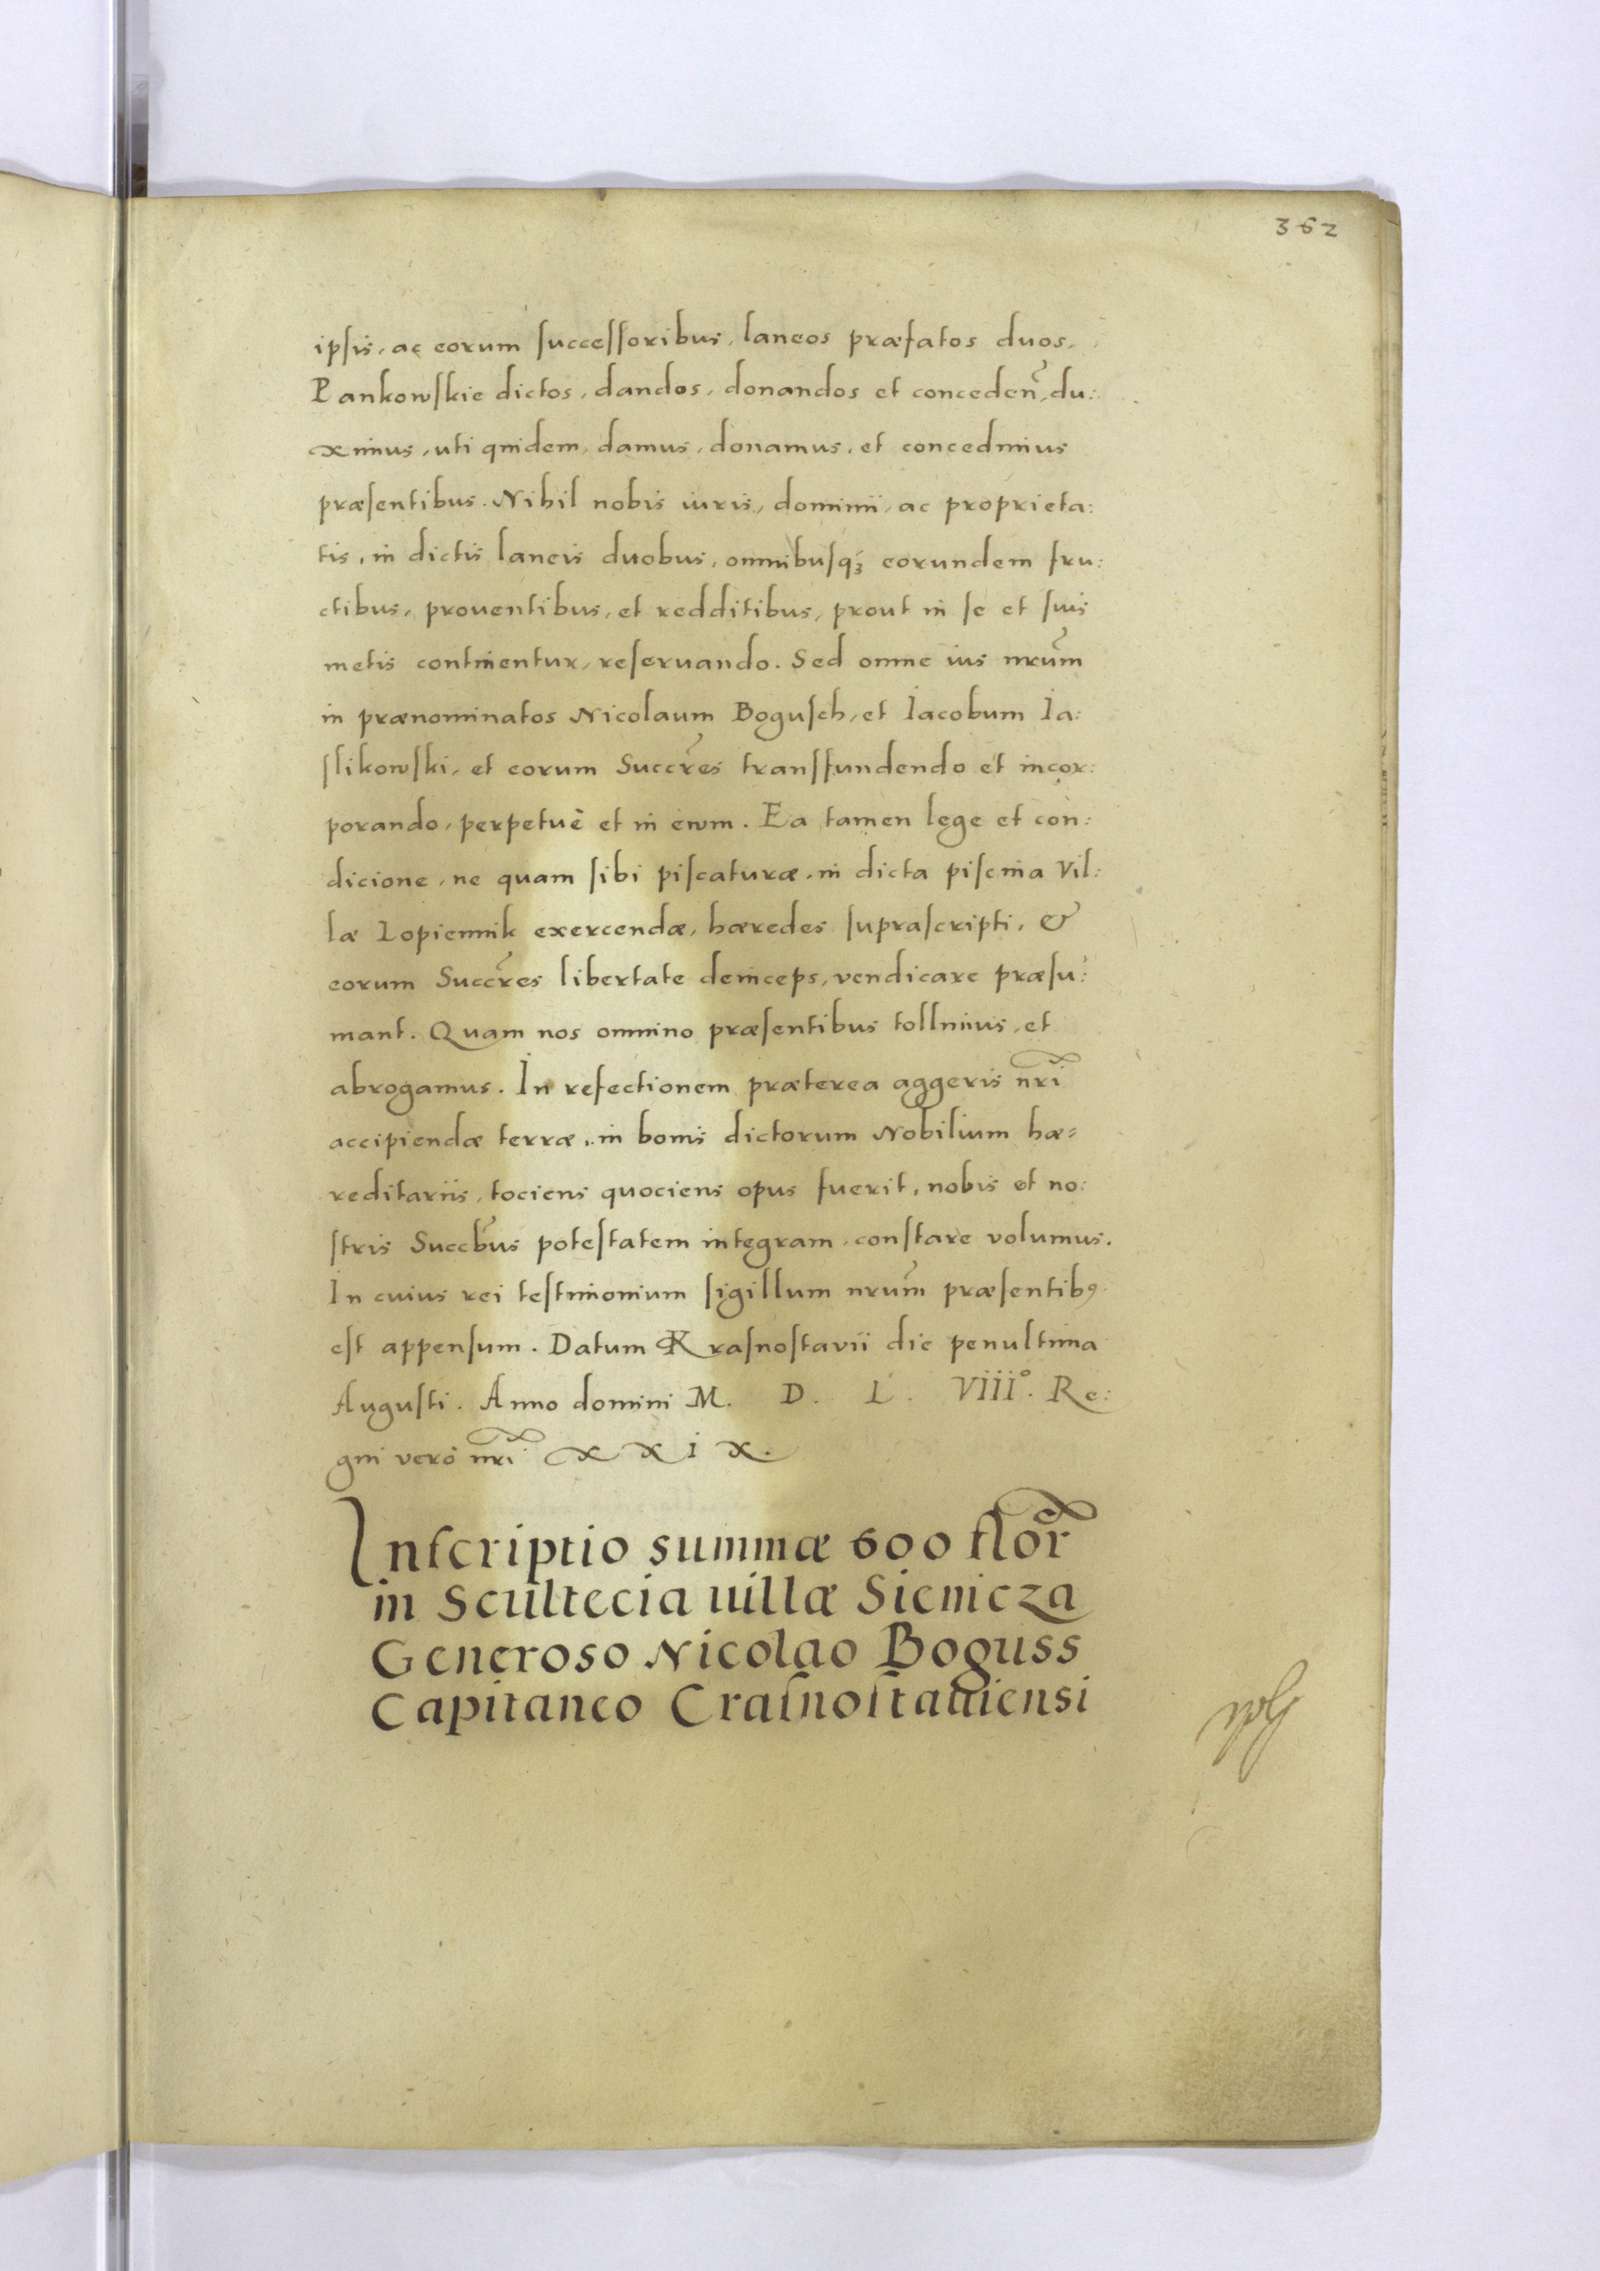 362
ipsis, ac eorum successoribus, laneos præfatos duos,
Pankowskie dictos, dandos, donandos et conceden̄, du:
ximus, uti quidem, damus, donamus, et concedimus
præsentibus. Nihil nobis iuris, dominii, ac proprieta:
tis, in dictis laneis duobus, omnibusqꝫ eorundem fru:
ctibus, proventibus, et redditibus, prout in se et suis
metis continentur, reservando. Sed omne ius nrum̄
in prænominatos Nicolaum Bogusch, et Iacobum Ia:
slikowski, et eorum Succr̄es transfundendo et incor:
porando, perpetuè et in ewm. Ea tamen lege et con:
dicione, ne quam sibi piscaturæ, in dicta piscina Vil:
læ Lopiennik exercendæ, hæredes suprascripti, &
eorum Succr̄es libertate deinceps, vendicare præsu:
mant. Quam nos omnino præsentibus tollimus, et
abrogamus. In refectionem præterea aggeris nr̄i
accipiendæ terræ, in bonis dictorum Nobilium hæ=
reditariis, tociens quociens opus fuerit, nobis et no:
stris Succb̄us potestatem integram, constare volumus.
In cuius rei testimonium sigillum nrum̄ præsentibꝰ
est appensum. Datum Krasnostavii die penultima
Augusti. Anno domini M. D. L. VIII°. Re:
gni verò nr̄i XXIX.
Inscriptio summæ 600 flor̄
in Scultecia uillæ Sienicza
Generoso Nicolao Boguss
Capitaneo Crasnostauiensi